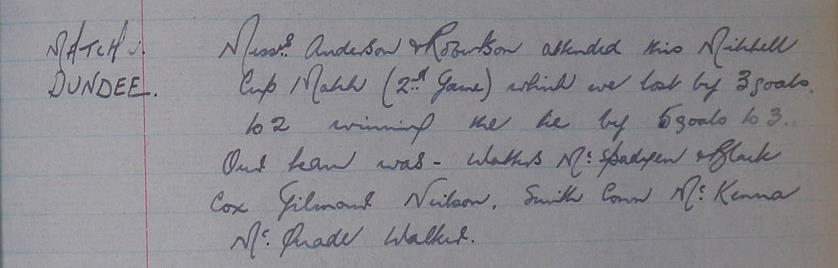 MATCH v. Messrs Anderson & Robertson attended this Mitchell
DUNDEE. Cup Match (2nd Game) which we lost by 3 goals.
to 2 winning the tie by 5 goals to 3..
Our team was - Walker McSpadyen & Black
Cox Gilmour Neilson, Smith Conn McKenna
McQuade Walker.